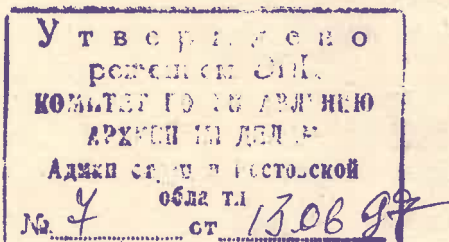 Утверждено
решением ЭПК
КОМИТЕТ ПО УПРАВЛЕНИЮ
АРХИВНЫМ ДЕЛОМ
Админ Ростовской
области
№ 7 от 13.06.97